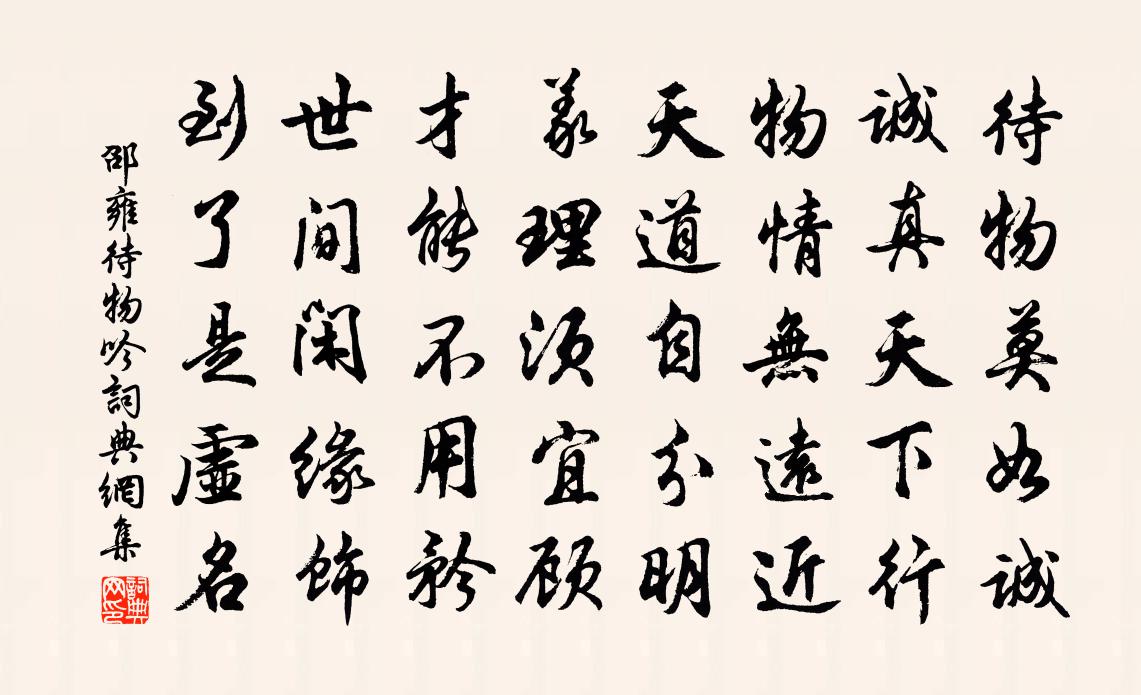 待物莫如誠
誠真天下行
物情無遠近
天道自分明
義理須宜顧
才能不用矜
世間閑緣飾
到了是虛名
邵雍待物吟詞典網集
詞典网印